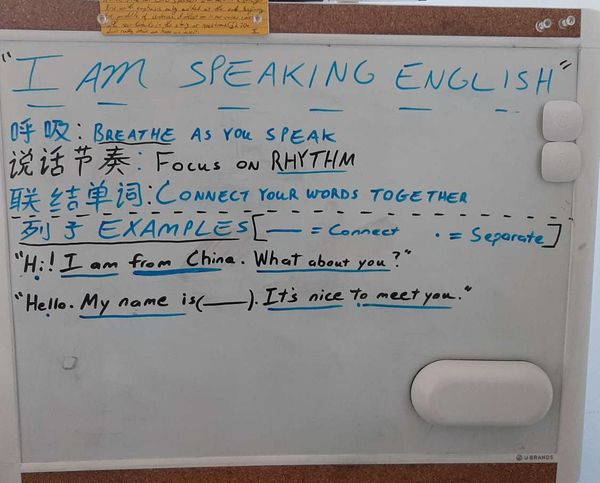 "I AM SPEAKING ENGLISH"
呼吸: BREATHE AS YOU SPEAK
说话节奏: FOCUS ON RHYTHM
联结单词: CONNECT YOUR WORDS TOGETHER
列子 EXAMPLES [— = Connect • = Separate]
"Hi! I am from China. What about you?"
"Hello. My name is (___). It's nice to meet you."
U BRANDS